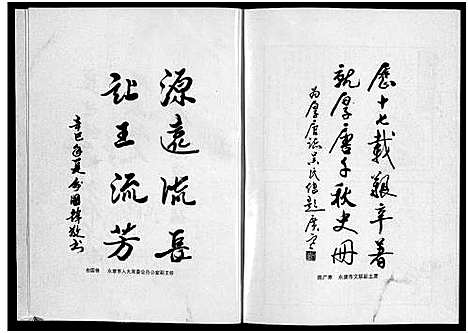 历十七载艰辛著
就厚唐千秋史册
为厚唐派吴氏修题 广寒
陈广寒 永康市文联副主席
源远流长
让王流芳
辛巳年夏 国锋敬书
永康市人大常委会办公室副主任